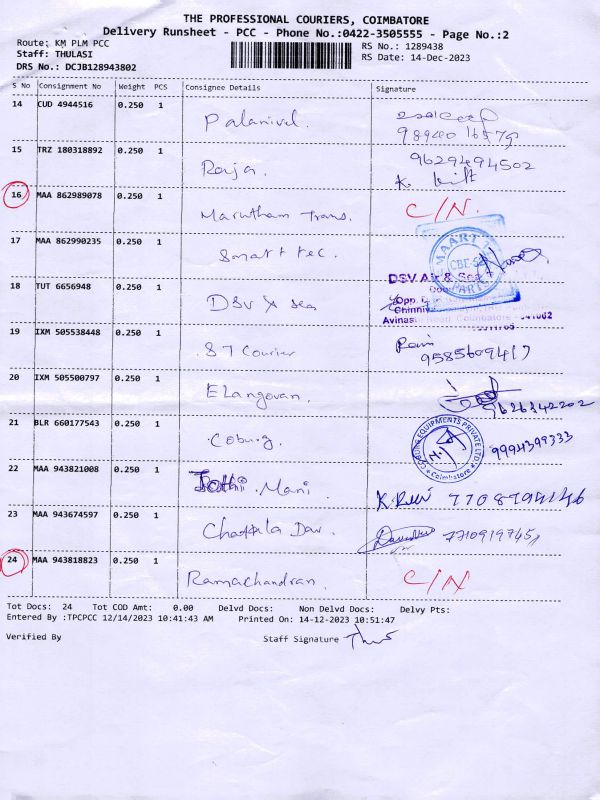 THE PROFESSIONAL COURIERS, COIMBATORE
Delivery Runsheet - PCC - Phone No.:0422-3505555 - Page No.:2
Route: KM PLM PCC
RS No.: 1289438
Staff: THULASI
RS Date: 14-Dec-2023
DRS No.: DCJB128943802
S No Consignment No Weight PCS Consignee Details Signature
14 CUD 4944516 0.250 1 Palanivel.
15 TRZ 180318892 0.250 1 Raja. 9629494502
16 MAA 862989078 0.250 1 Marutham Trans. C/N.
17 MAA 862990235 0.250 1 Smart tec.
MAART
18 TUT 6656948 0.250 1 DSV sea
DSV Air & Sea
Opp.
Chinniy
Avinas Road, Coimbatore - 641062
19 IXM 505538448 0.250 1 ST Courier
9585609417
20 IXM 505500797 0.250 1 Elangovan. 9626342202
21 BLR 660177543 0.250 1 Coburg. 9994399333
COBURG EQUIPMENTS PRIVATE LTD
Coimbatore
22 MAA 943821008 0.250 1 Jothi Mani
23 MAA 943674597 0.250 1
24 MAA 943818823 0.250 1 Ramachandran. C/N
Tot Docs: 24 Tot COD Amt: 0.00 Delvd Docs: Non Delvd Docs: Delvy Pts:
Entered By :TPCPCC 12/14/2023 10:41:43 AM Printed On: 14-12-2023 10:51:47
Verified By Staff Signature